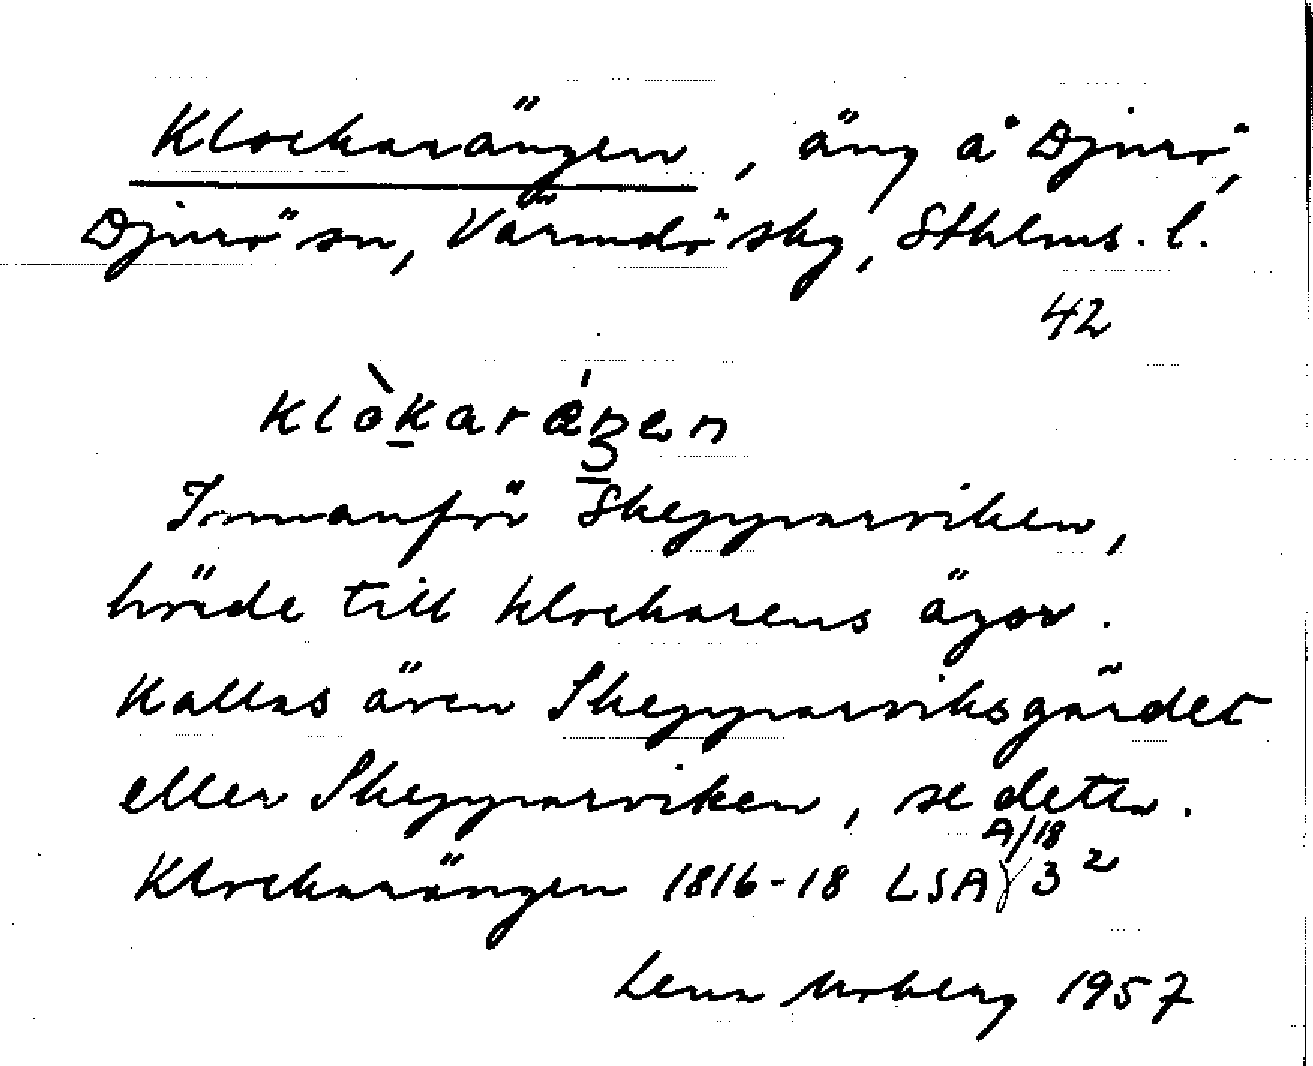 Klockarängen, äng å Djurö,
Djurö sn, Värmdö skg, Sthlms. l.
42
klòkaráŋen
Innanför Skepparviken,
hörde till klockarens ägor.
Kallas även Skepparviksgärdet
eller Skepparviken, se detta.
A/18
Klockarängen 1816-18 LSA 3²
Lena Moberg 1957